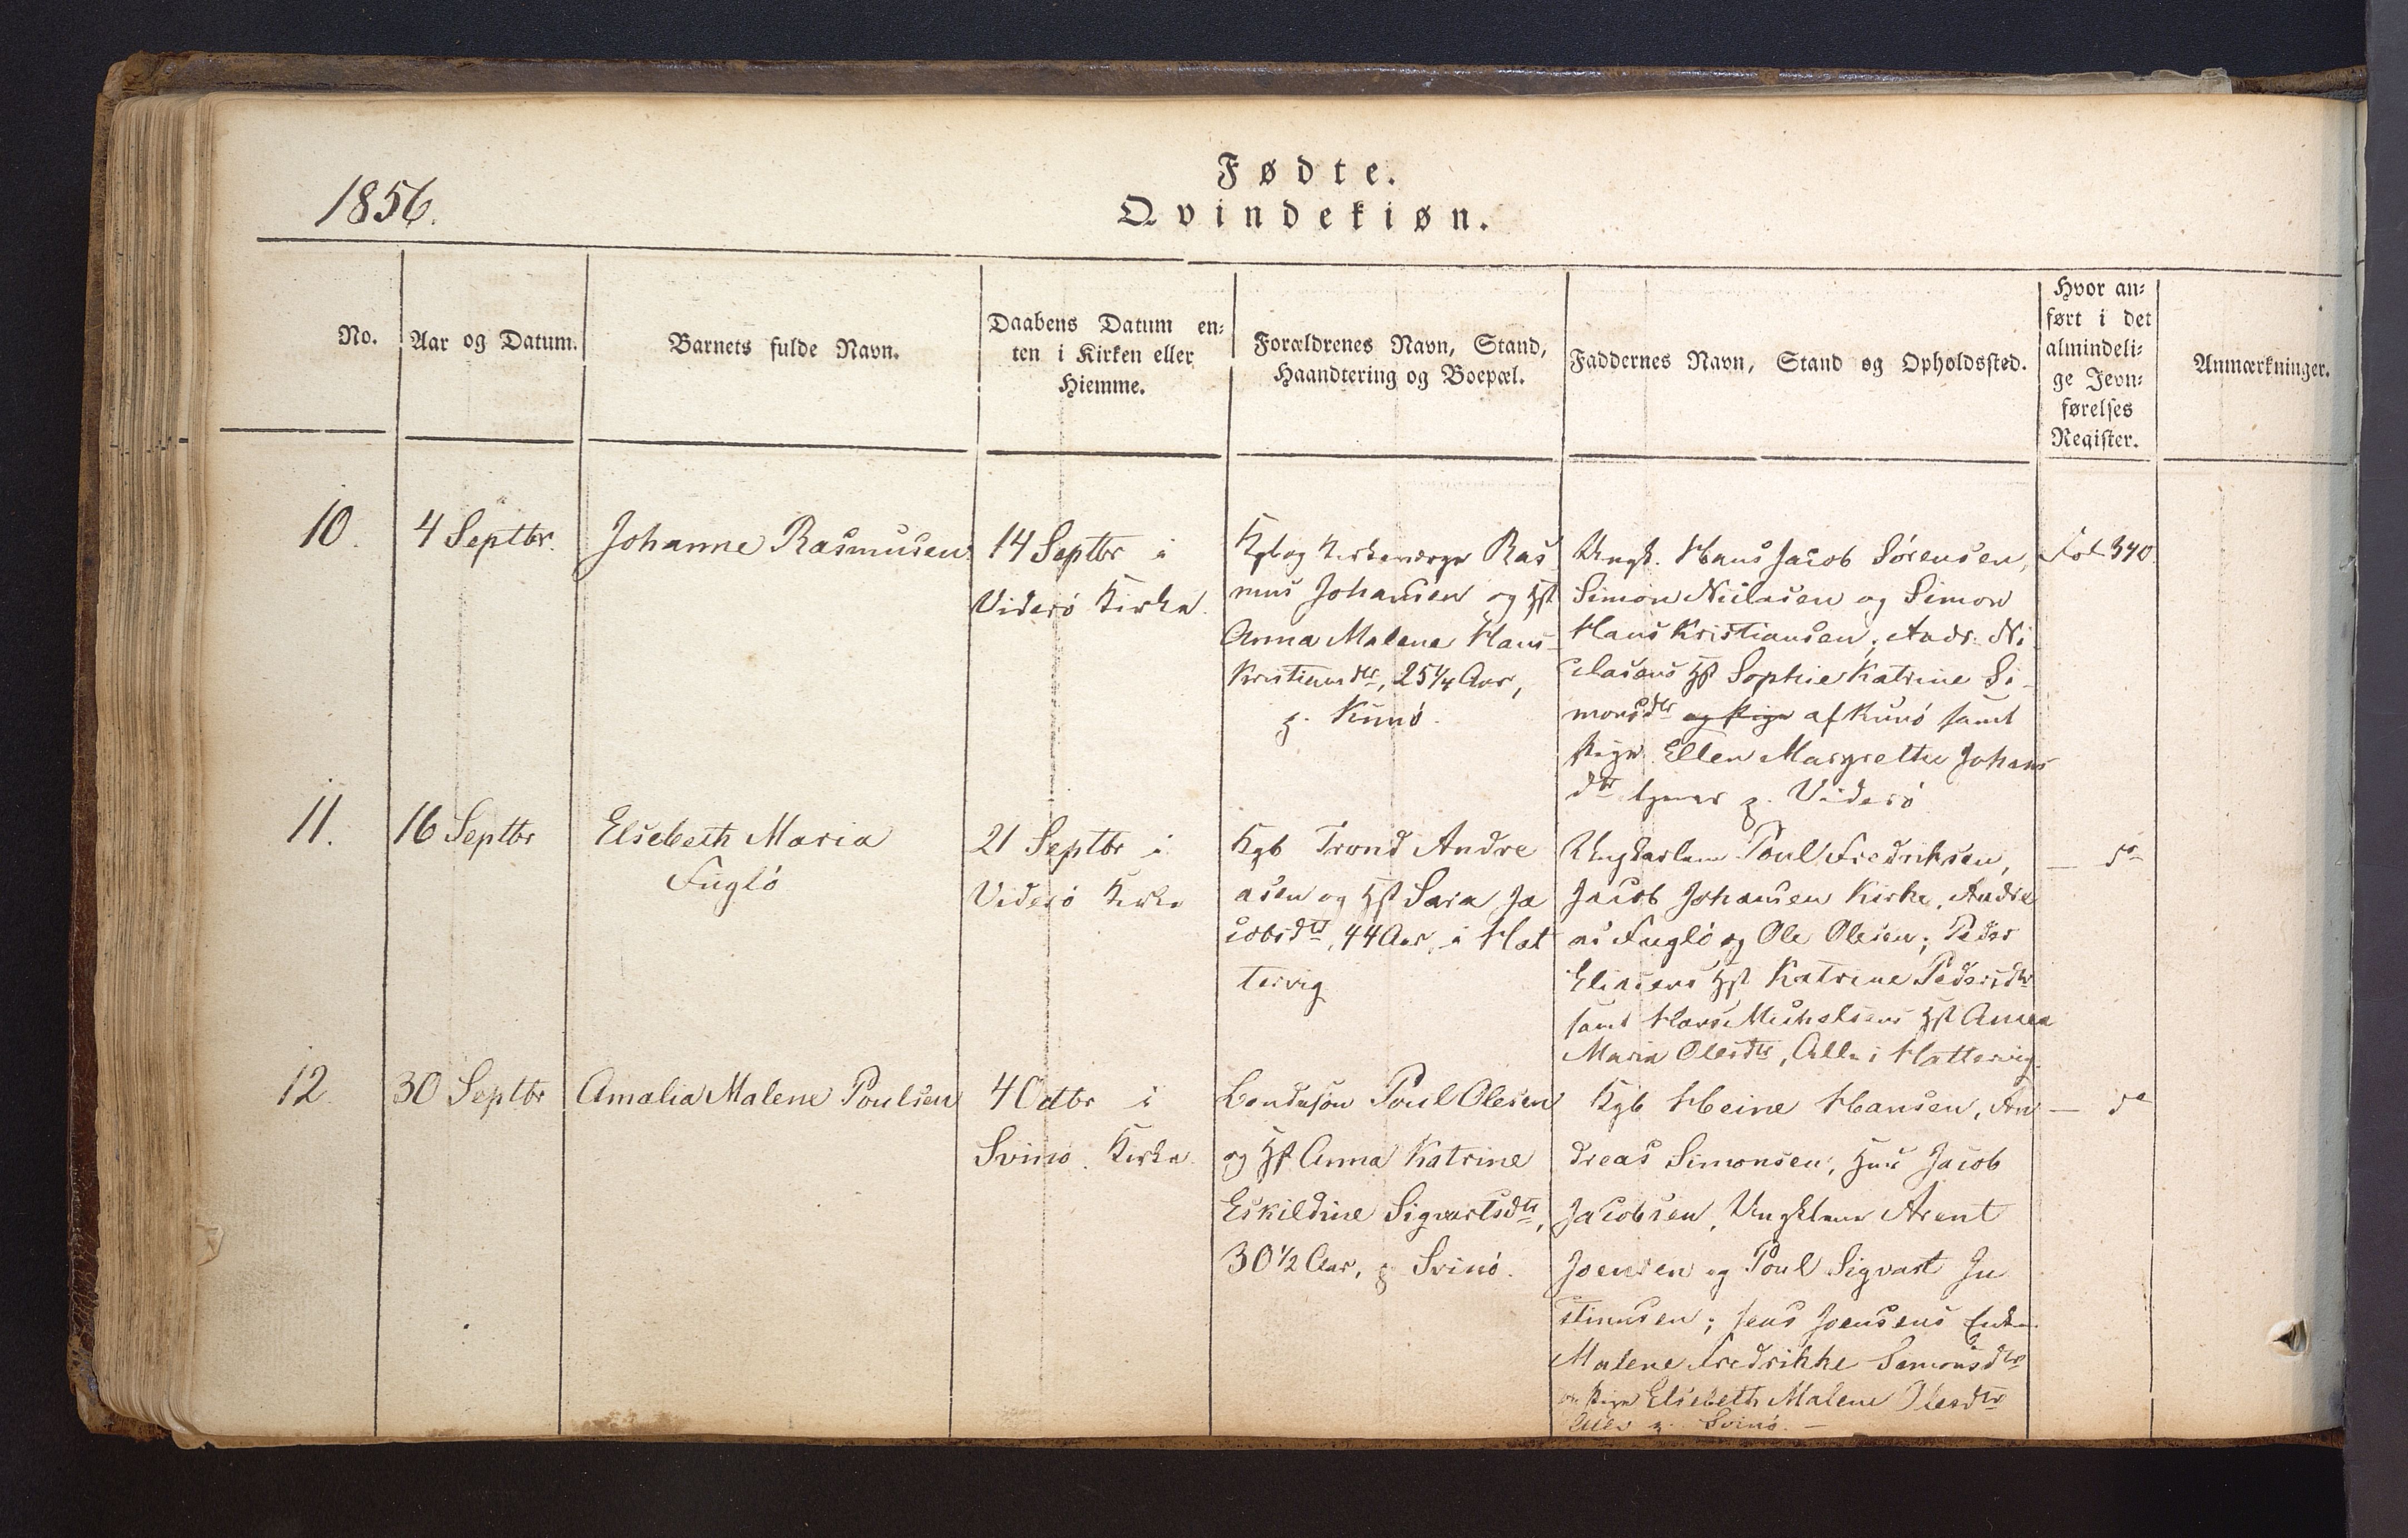 1856.
Fødte.
Qvindekiøn.
No.
Aar og Datum.
Barnets fulde Navn.
Daabens Datum en-
ten i Kirken eller
Hiemme.
Forældrenes Navn, Stand,
Haandtering og Boepæl.
Faddernes Navn, Stand og Opholdssted.
Hvor an-
ført i det
almindeli-
ge Jevn-
førelses
Register.
Anmærkninger.
10.
4 Septbr.
Johanne Rasmusen
14 Septbr i
Viderö Kirke.
Kgb og Kirkeværge Ras
mus Johansen og Hst
Anna Malene Hans
Kristiansdtr, 25 1/4 Aar,
p. Kunö.
Ungk. Hans Jacob Sörensen,
Simon Niclasen og Simon
Hans Kristiansen; Andr. Ni
clasens Hst Sophie Katrine Si-
monsdtr og Pige af Kunö samt
Pige Ellen Margrethe Johans
dtr p. Viderö
Fol 340.
11.
16 Septbr
Elsebeth Maria
Fuglö
21 Septbr i
Viderö Kirke
Kgb Trond Andre
asen og Hst Sara Ja
cobsdtr, 44 Aar, i Hat
tervig
Ungkarlene Poul Fredriksen,
Jacob Johansen Kirke, Andre
as Fuglö og Ole Olesen; Peder
Eliasens Hst Katrine Pedersdtr
samt Hans Michelsens Hst Anna
Maria Olesdtr, Alle i Hattervig.
— do
12.
30 Septbr
Amalia Malene Poulsen
4 Octbr i
Svinö Kirke.
Bondesön Poul Olesen
og Hst Anna Katrine
Eskildine Sigvartsdtr,
30 1/2 Aar, p Svinö.
Kgb Heine Hansen, An
dreas Simonsen, Jacob
Jacobsen, Arent
Joensen og Poul Sigvart Ju
stinusen; Jens Joensens Enke
Malene Fredrikke Simonsdtr
og Pige Elsebeth Malene Olesdtr
Alle p. Svinö. —
— do